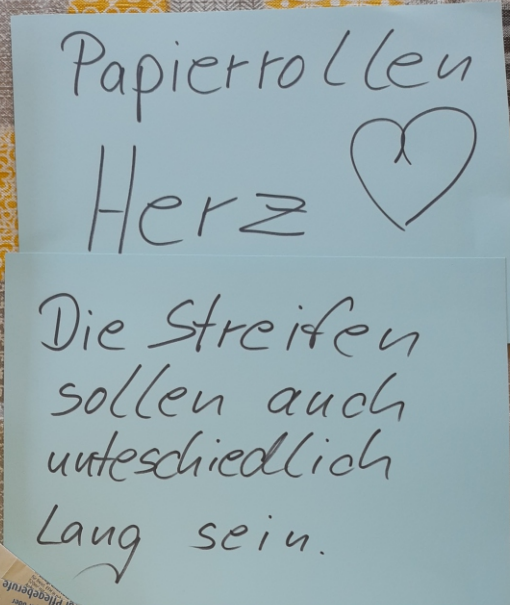 Papierrollen
Herz
Die Streifen
sollen auch
unteschiedlich
Lang sein.
Pflegeberufe